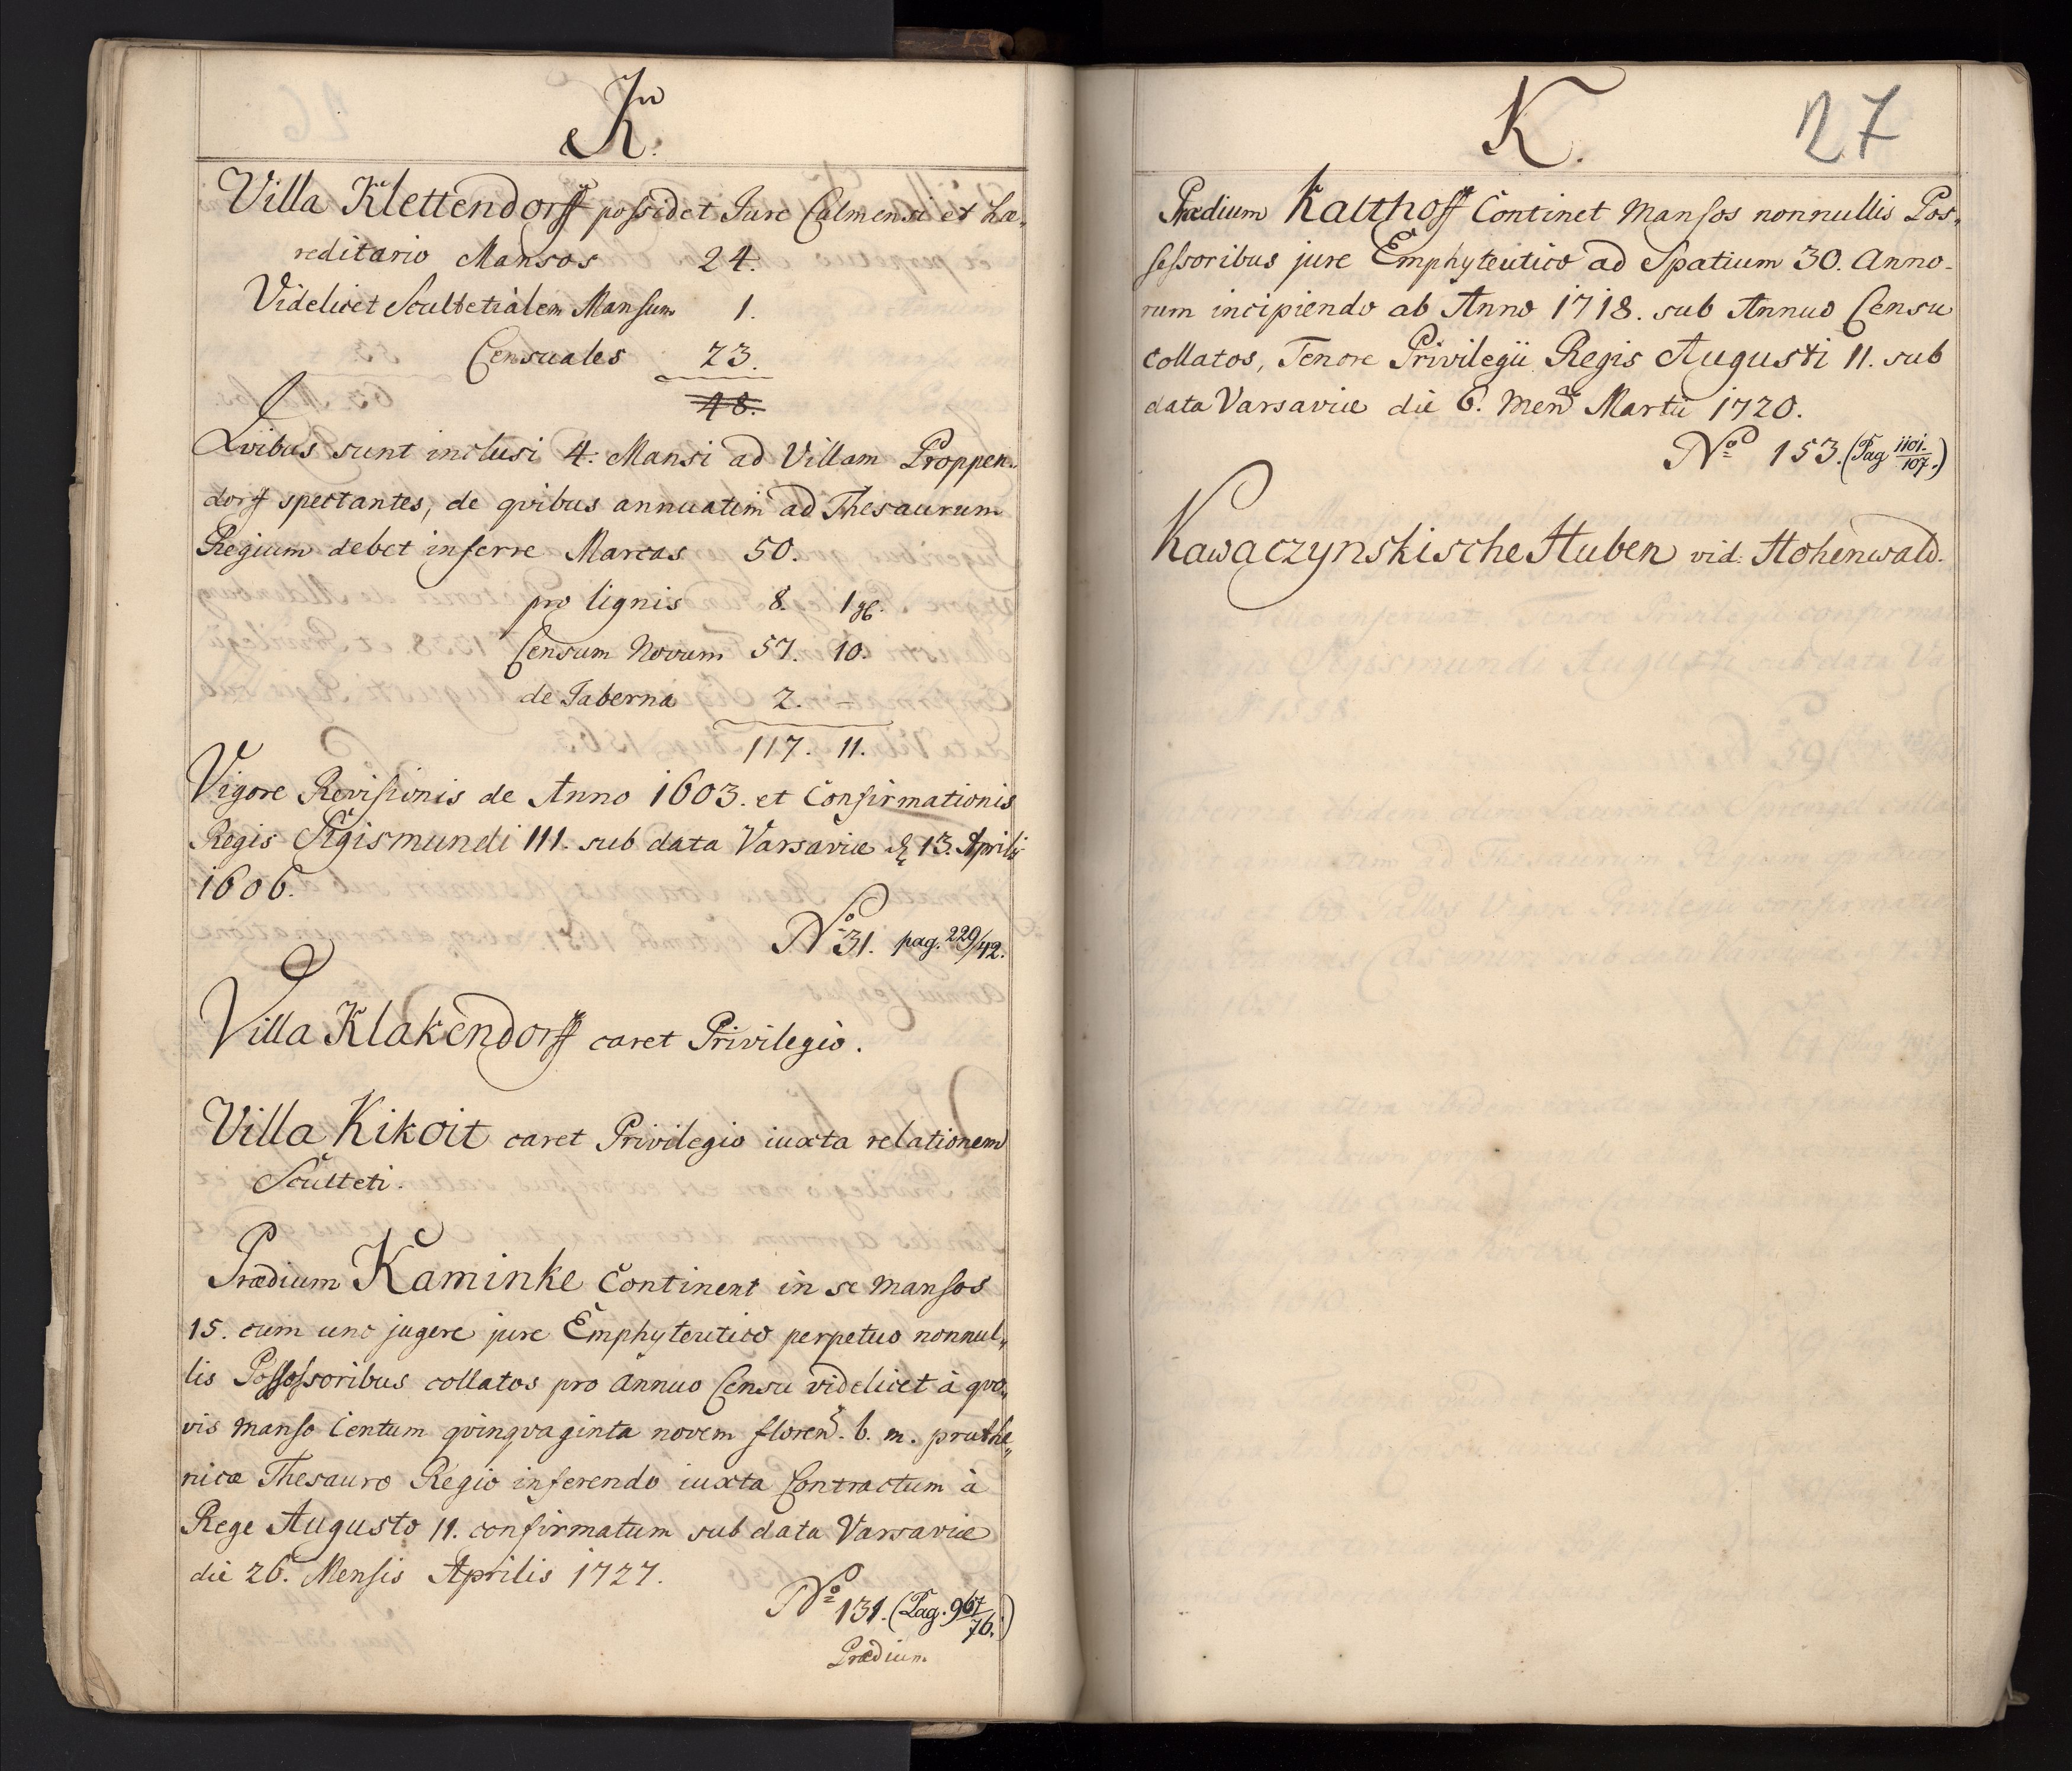 K.
Villa Klettendorff possidet Jure Culmensi et hæ„
reditario Mansos 24.
Videlicet Scultetialem Mansum 1.
Censuales 23.
48.
Qvibus sunt inclusi 4. Mansi ad Villam Proppen„
dorff spectantes, de qvibus annuatim ad Thesaurum
Regium debet inferre Marcas 50.
pro lignis 8. 1 gß.
Censum Novum 57. 10.
de Taberna 2. –
117. 11.
Vigore Revisionis de Anno 1603. et Confirmationis
Regis Sigismundi III. sub data Varsaviæ d. 13. Aprilis
1606.
No 31. pag. 229/42.
Villa Klakendorff caret Privilegio.
Villa Kikoit caret Privilegio iuxta relationem
Sculteti.
Prædium Kaminke Continent in se Mansos
15. cum uno jugere jure Emphyteutico perpetuo nonnul„
lis Possessoribus collatos pro annuo Censu videlicet à qvo„
vis manso Centum qvinqvaginta novem floren. b. m. pruthe„
nicæ Thesauro Regio inferendo iuxta Contractum à
Rege Augusto II. confirmatum sub data Varsaviæ
die 26. Mensis Aprilis 1727.
No 131. (Pag. 967/76.)
Prædium
K. 27
Prædium Kalthoff Continet Mansos nonnullis Pos„
sessoribus jure Emphyteutico ad Spatium 30. Anno-
rum incipiendo ab Anno 1718. sub Annuo Censu
Collatos, Tenore Privilegii Regis Augusti II. sub
data Varsaviæ die 6. Men Martii 1720.
No 153. (Pag 1101./107.)
Kawaczynskische Huben vid. Hohenwald.